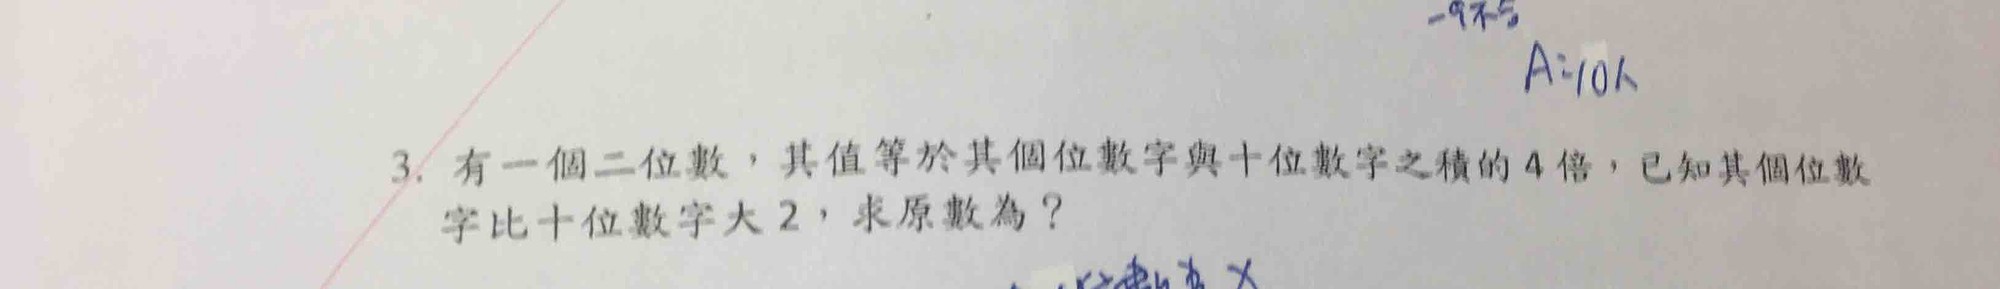 -9不
A:10人
3. 有一個二位數，其值等於其個位數字與十位數字之積的4倍，已知其個位數
字比十位數字大2，求原數為？
數為 X